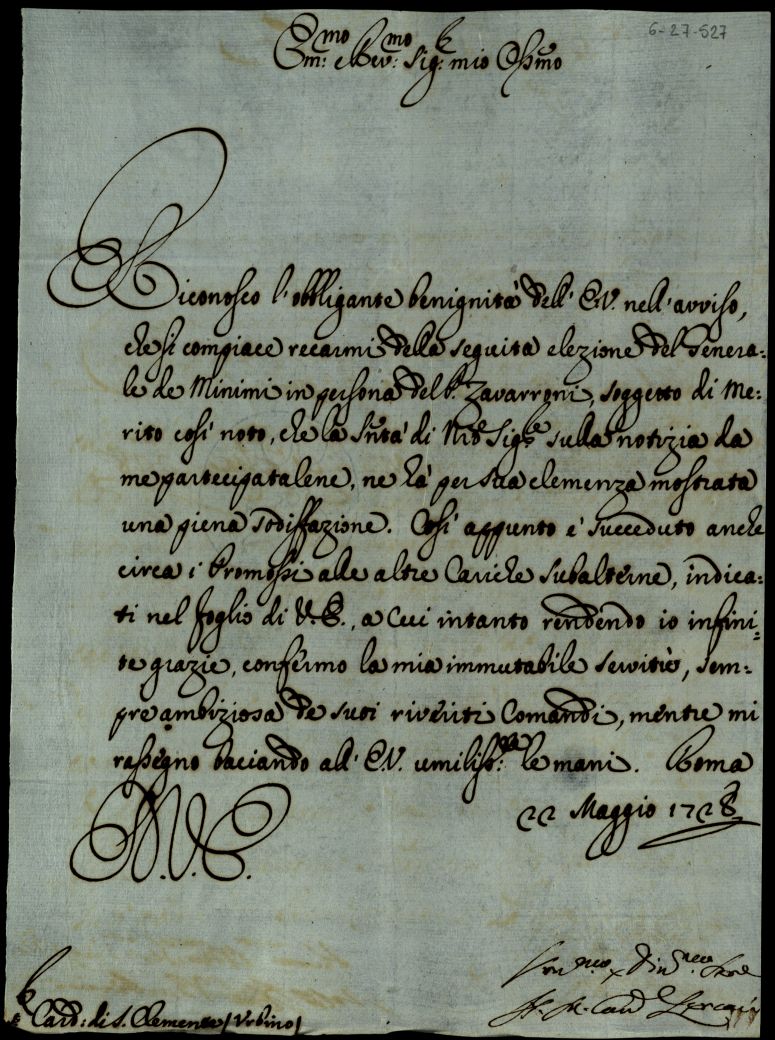 6-27-527
Em:mo e Rev:mo Sig:r mio Oss:mo
Riconosco l'obbligante benignità dell' E.V. nell'avviso,
che si compiace recarmi della seguita elezione del Genera:
le de Minimi in persona del P. Zavarroni, soggetto di Me:
rito così noto, che la Sntà di Nro Sig:re sulla notizia da
me partecipatalene, ne hà per sua clemenza mostrata
una piena sodisfazione. Così appunto è succeduto anche
circa i Promossi alle altre Cariche subalterne, indica:
ti nel foglio di V.E., a Cui intanto rendendo io infini:
te grazie, confermo la mia immutabile servitù, sem:
pre ambiziosa de suoi riveriti Comandi, mentre mi
rassegno baciando all' E.V. umiliss:te le mani. Roma
22 Maggio 1728
D.V.E.
Card: di S. Clemente / Urbino /
N. M. Card Lercari